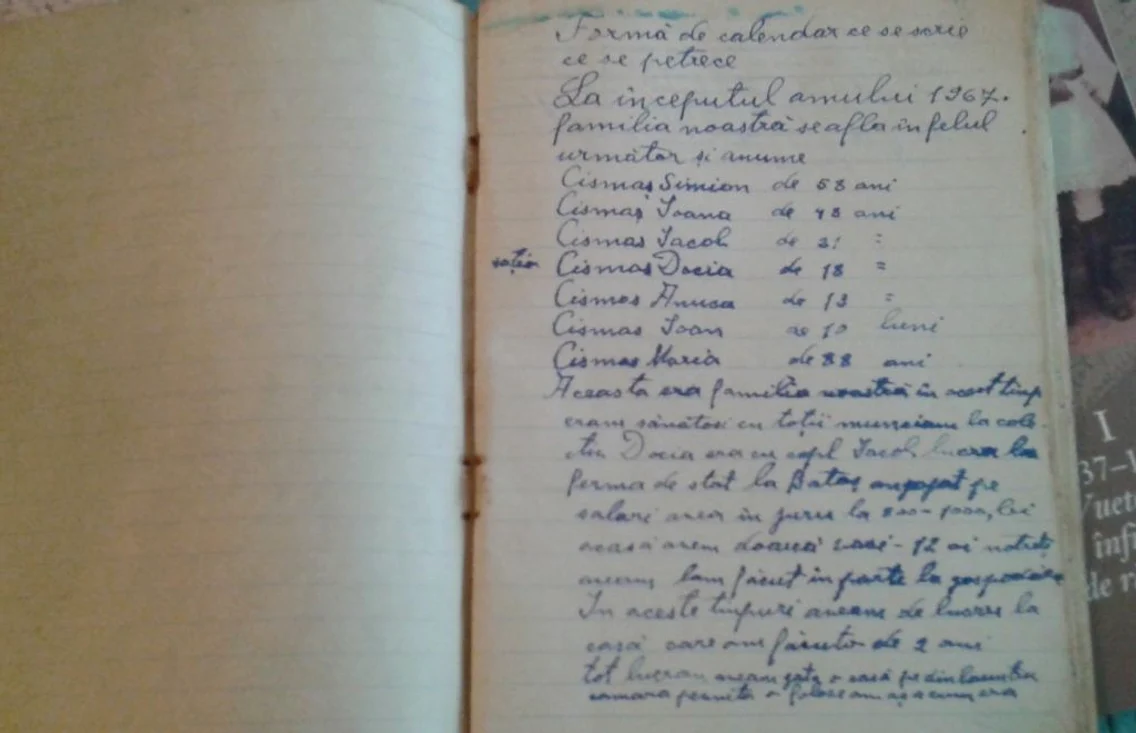 Formă de calendar ce se scrie
ce se petrece
La inceputul anului 1967.
familia noastră se afla in felul
următor și anume
Cismaș Simion de 58 ani
Cismaș Ioana de 48 ani
Cismas Iacob de 21 =
soția Cismas Docia de 18 =
Cismas Anuca de 13 =
Cismas Ioan de 10 luni
Cismas Maria de 88 ani
Aceasta era familia noastră in acest timp
eram sănătosi cu toții munceam la colec
tiv Docia era cu copl Iacob lucra la
ferma de stat la Bataș angajat pe
salari avea in juru la 800-1000, lei
acasă avem două 12 oi
aveam lam făcut in parte la
In aceste timpuri aveam de lucru la
casă care am făcuto de 2 ani
tot lucram aveam gata o casă pe dinlauntru
camara o așa cum era
I
37-1
Vuet
înfi
de r